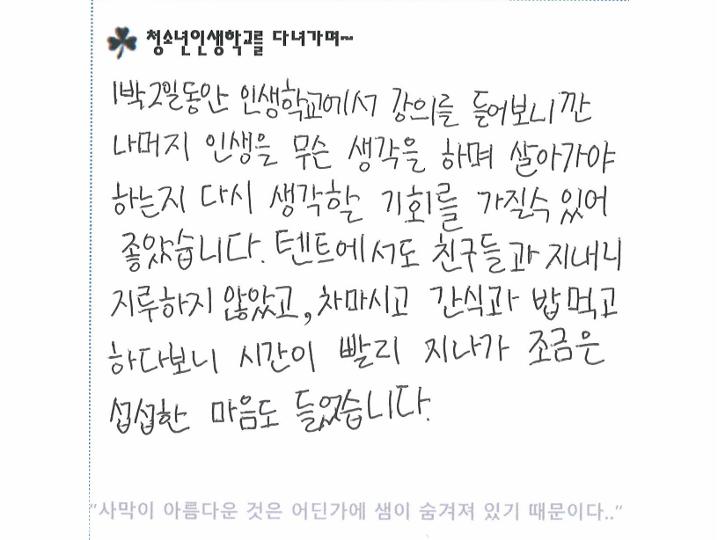 청소년인생학교를 다녀가며~
1박2일동안 인생학교에서 강의를 들어보니깐
나머지 인생을 무슨 생각을 하며 살아가야
하는지 다시 생각할 기회를 가질수 있어
좋았습니다. 텐트에서도 친구들과 지내니
지루하지 않았고, 차마시고 간식과 밥먹고
하다보니 시간이 빨리 지나가 조금은
섭섭한 마음도 들었습니다.
"사막이 아름다운 것은 어딘가에 샘이 숨겨져 있기 때문이다.."